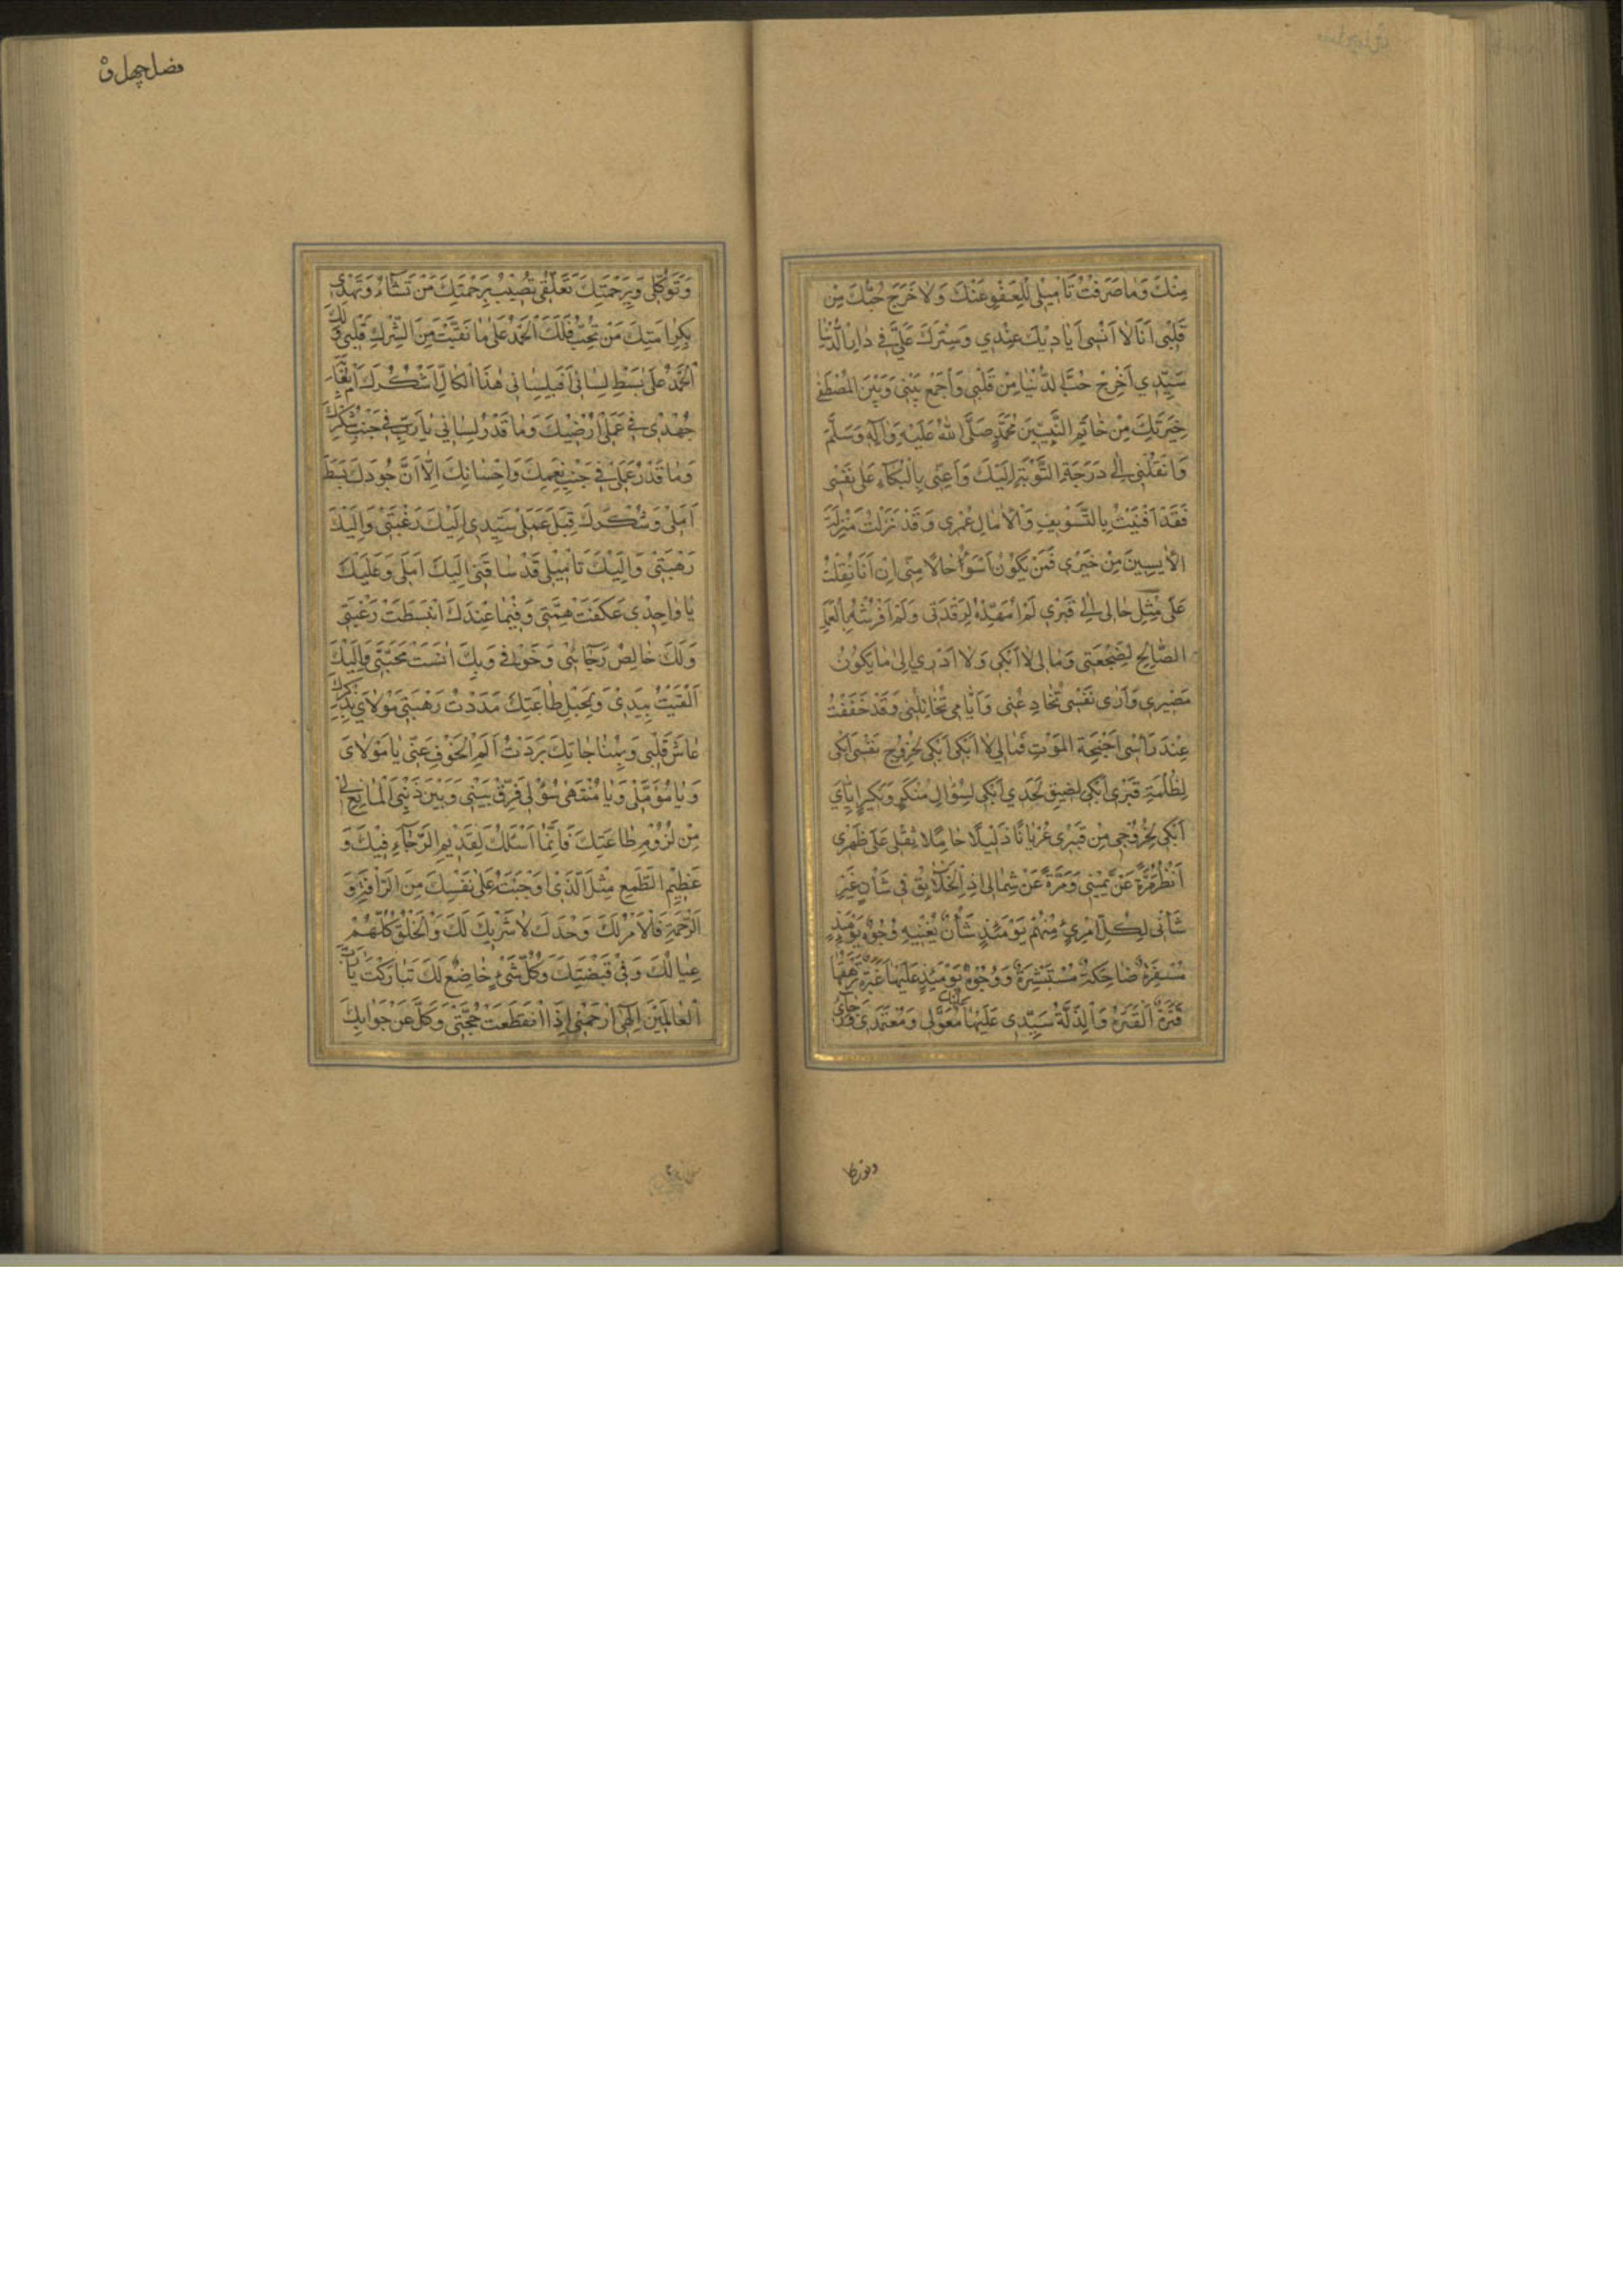 مِنْكَ وَمٰا صَرَفْتُ تَأْمِيْلِي لِلْعَفْوِ عَنْكَ وَلٰا خَرَجَ حُبُّكَ مِنْ
قَلْبِي اَنَا لٰا اَنْسٰى اَيٰادِيْكَ عِنْدِي وَسِتْرَكَ عَلَيَّ فِي دٰارِ الدُّنْيٰا
سَيِّدِي اَخْرِجْ حُبَّ الدُّنْيٰا مِنْ قَلْبِي وَاَجْمَعْ بَيْنِي وَبَيْنَ الْمُصْطَفٰى
خِيَرَتِكَ مِنْ خٰاتَمِ النَّبِيِّيْنَ مُحَمَّدٍ صَلَّى اللهُ عَلَيْهِ وَاٰلِهِ وَسَلَّمَ
وَانْقُلْنِي اِلٰى دَرَجَةِ التَّوْبَةِ اِلَيْكَ وَاَعِنِّي بِالْبُكٰاءِ عَلٰى نَفْسِي
فَقَدْ اَفْنَيْتُ بِالتَّسْوِيفِ وَالْاٰمٰالِ عُمْرِي وَقَدْ نَزَلْتُ مَنْزِلَةَ
الْاٰيِسِيْنَ مِنْ خَيْرِي فَمَنْ يَكُوْنُ اَسْوَأُ حٰالًا مِنِّي اِنْ اَنَا نُقِلْتُ
عَلٰى مِثْلِ حٰالِي اِلٰى قَبْرِي لَمْ اُمَهِّدْهُ لِرَقْدَتِي وَلَمْ اَفْرُشْهُ بِالْعَمَلِ
الصّٰالِحِ لِضَجْعَتِي وَمٰا لِي لٰا اَبْكِي وَلٰا اَدْرِي اِلٰى مٰا يَكُوْنُ
مَصِيْرِي وَاَرٰى نَفْسِي تُخٰادِعُنِي وَاَيّٰامِي تُخٰاتِلُنِي وَقَدْ خَفَقَتْ
عِنْدَ رَأْسِي اَجْنِحَةُ الْمَوْتِ فَمٰا لِي لٰا اَبْكِي اَبْكِي لِخُرُوْجِ نَفْسِي اَبْكِي
لِظُلْمَةِ قَبْرِي اَبْكِي لِضِيْقِ لَحَدِي اَبْكِي لِسُؤٰالِ مُنْكَرٍ وَنَكِيْرٍ اِيّٰايَ
اَبْكِي لِخُرُوْجِي مِنْ قَبْرِي عُرْيٰانًا ذَلِيْلًا حٰامِلًا ثِقْلِي عَلٰى ظَهْرِي
اَنْظُرُ مَرَّةً عَنْ يَمِيْنِي وَمَرَّةً عَنْ شِمٰالِي اِذِ الْخَلٰائِقُ فِي شَأْنٍ غَيْرِ
شَأْنِي لِكُلِّ امْرِئٍ مِنْهُمْ يَوْمَئِذٍ شَأْنٌ يُغْنِيْهِ وُجُوْهٌ يَوْمَئِذٍ
مُسْفِرَةٌ ضٰاحِكَةٌ مُسْتَبْشِرَةٌ وَوُجُوْهٌ يَوْمَئِذٍ عَلَيْهٰا غَبَرَةٌ تَرْهَقُهٰا
قَتَرَةٌ الْقَتَرَةُ وَالذِّلَّةُ سَيِّدِي عَلَيْهٰا مُعَوَّلِي وَمُعْتَمَدِي وَرَجٰائِي
فضل چهل و
وَتَوَكُّلِي وَبِرَحْمَتِكَ تَعَلُّقِي تُصِيْبُ بِرَحْمَتِكَ مَنْ تَشٰاءُ وَتَهْدِي
بِكَرٰامَتِكَ مَنْ تُحِبُّ فَلَكَ الْحَمْدُ عَلٰى مٰا نَقَّيْتَ مِنَ الشِّرْكِ قَلْبِي وَلَكَ
الْحَمْدُ عَلٰى بَسْطِ لِسٰانِي اَفَبِلِسٰانِي هٰذَا الْكٰالِّ اَشْكُرُكَ اَمْ بِغٰايَةِ
جُهْدِي فِي عَمَلِي اُرْضِيْكَ وَمٰا قَدْرُ لِسٰانِي يٰا رَبِّ فِي جَنْبِ شُكْرِكَ
وَمٰا قَدْرُ عَمَلِي فِي جَنْبِ نِعَمِكَ وَاِحْسٰانِكَ اِلّٰا اَنَّ جُوْدَكَ بَسَطَ
اَمَلِي وَشُكْرَكَ قَبِلَ عَمَلِي سَيِّدِي اِلَيْكَ رَغْبَتِي وَاِلَيْكَ
رَهْبَتِي وَاِلَيْكَ تَأْمِيْلِي قَدْ سٰاقَنِي اِلَيْكَ اَمَلِي وَعَلَيْكَ
يٰا وٰاحِدِي عَكَفَتْ هِمَّتِي وَفِيْمٰا عِنْدَكَ انْبَسَطَتْ رَغْبَتِي
وَلَكَ خٰالِصُ رَجٰائِي وَخَوْفِي وَبِكَ اَنِسَتْ مَحَبَّتِي وَاِلَيْكَ
اَلْقَيْتُ بِيَدِيْ وَبِحَبْلِ طٰاعَتِكَ مَدَدْتُ رَهْبَتِي مَوْلٰايَ بِذِكْرِكَ
عٰاشَ قَلْبِي وَبِمُنٰاجٰاتِكَ بَرَّدْتُ اَلَمَ الْخَوْفِ عَنِّي يٰا مَوْلٰايَ
وَيٰا مُؤَمَّلِي وَيٰا مُنْتَهٰى سُؤْلِي فَرِّقْ بَيْنِي وَبَيْنَ ذَنْبِيَ الْمٰانِعِ لِي
مِنْ لُزُوْمِ طٰاعَتِكَ فَاِنَّمٰا اَسْئَلُكَ لِقَدِيْمِ الرَّجٰاءِ فِيْكَ وَ
عَظِيْمِ الطَّمَعِ مِثْلَ الَّذِيْ اَوْجَبْتَهُ عَلٰى نَفْسِكَ مِنَ الرَّأْفَةِ وَ
الرَّحْمَةِ فَالْاَمْرُ لَكَ وَحْدَكَ لٰا شَرِيْكَ لَكَ وَالْخَلْقُ كُلُّهُمْ
عِيٰالُكَ وَفِيْ قَبْضَتِكَ وَكُلُّ شَيْءٍ خٰاضِعٌ لَكَ تَبٰارَكْتَ يٰا رَبَّ
الْعٰالَمِيْنَ اِلٰهِي ارْحَمْنِي اِذَا انْقَطَعَتْ حُجَّتِي وَكَلَّ عَنْ جَوٰابِكَ